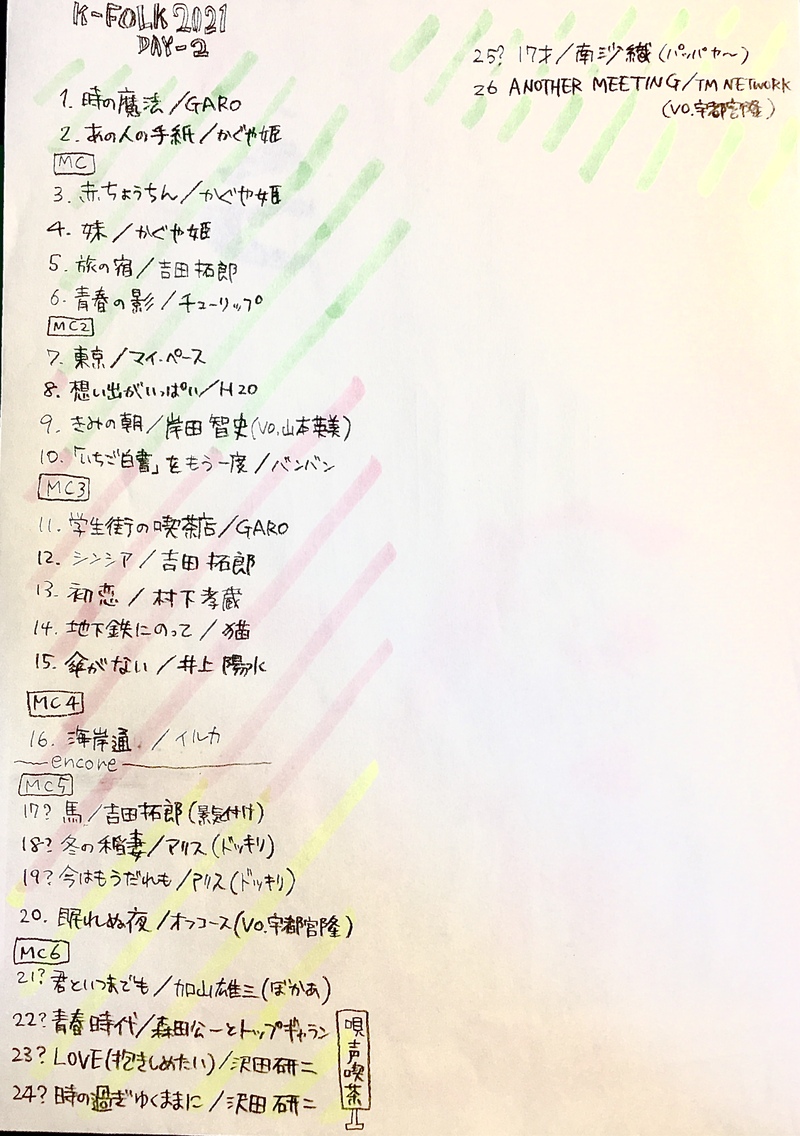 K-FOLK 2021
DAY-2
1. 時の魔法/GARO
2. あの人の手紙/かぐや姫
MC
3. 赤ちょうちん/かぐや姫
4. 妹/かぐや姫
5. 旅の宿/吉田拓郎
6. 青春の影/チューリップ
MC2
7. 東京/マイ・ペース
8. 想い出がいっぱい/H2O
9. きみの朝/岸田智史(VO.山本英美)
10. 「いちご白書」をもう一度/バンバン
MC3
11. 学生街の喫茶店/GARO
12. シンシア/吉田拓郎
13. 初恋/村下孝蔵
14. 地下鉄にのって/猫
15. 傘がない/井上陽水
MC4
16. 海岸通/イルカ
encore
MC5
17? 馬/吉田拓郎(景気付け)
18? 冬の稲妻/アリス(ドッキリ)
19? 今はもうだれも/アリス(ドッキリ)
20. 眠れぬ夜/オフコース(VO.宇都宮隆)
MC6
21? 君といつまでも/加山雄三(ぼかあ)
22? 青春時代/森田公一とトップギャラン
23? LOVE(抱きしめたい)/沢田研二
24? 時の過ぎゆくままに/沢田研二
唄声喫茶
25? 17才/南沙織(パッパヤ〜)
26 ANOTHER MEETING/TM NETWORK
(VO.宇都宮隆)